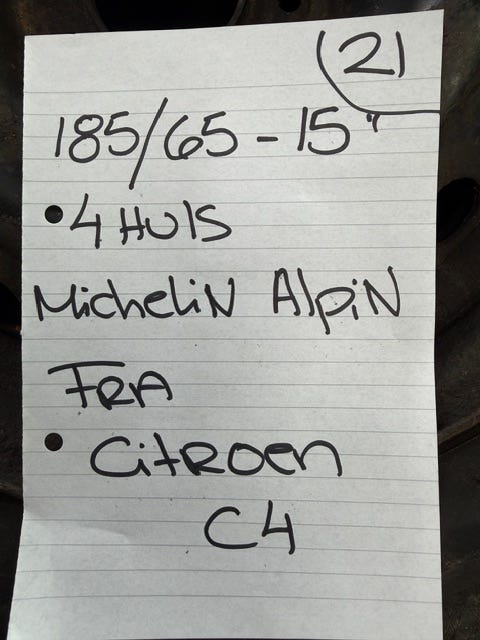 21
185/65-15"
4 HULS
Michelin Alpin
FRA
Citroen
C4